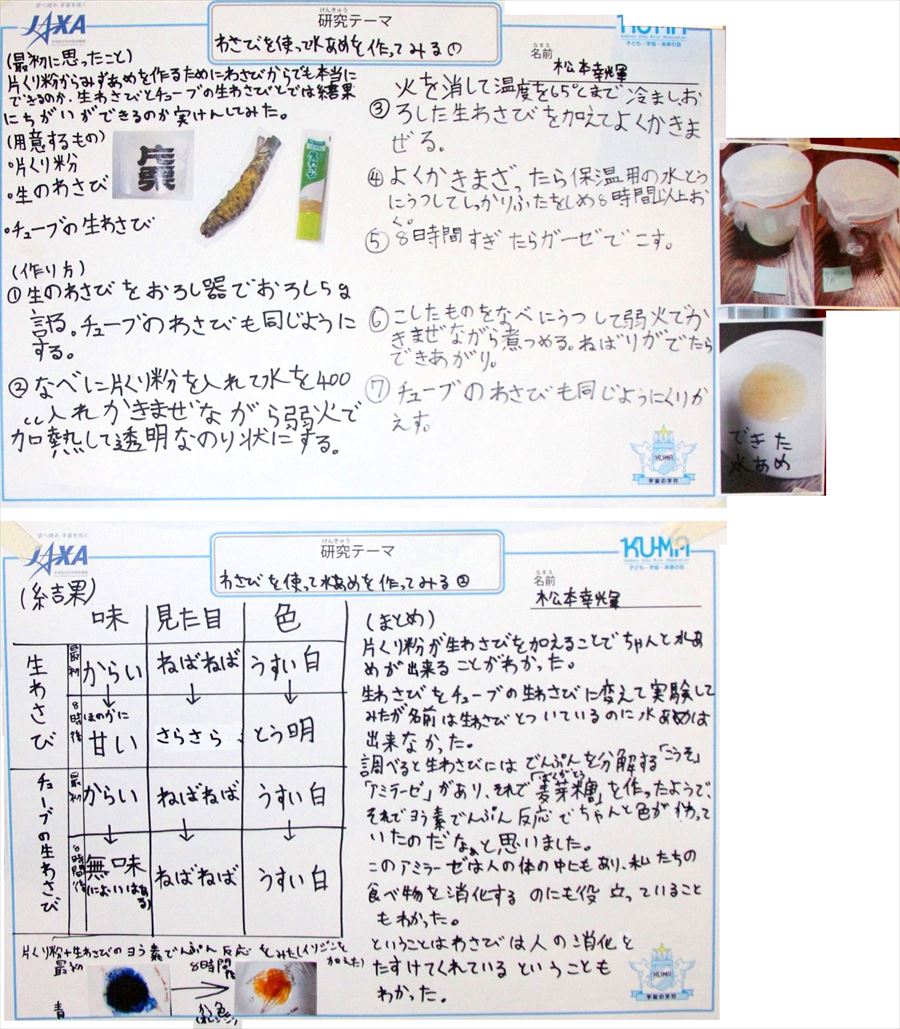 宙へ挑み、宇宙を拓く
JAXA
けんきゅう
研究テーマ
わさびを使って水あめを作ってみる①
KU-MA
子ども・宇宙・未来の会
なまえ
名前
松本幸輝
(最初に思ったこと)
片くり粉からみずあめを作るためにわさびからでも本当に
できるのか、生わさびとチューブの生わさびとでは結果
にちがいができるのか実けんしてみた。
(用意するもの)
・片くり粉
・生のわさび
・チューブの生わさび
片栗
(作り方)
①生のわさびをおろし器でおろし5g
計る。チューブのわさびも同じように
する。
②なべに片くり粉を入れて水を400
cc入れかきまぜながら弱火で
加熱して透明なのり状にする。
火を消して温度を65℃まで冷ましお
③ろした生わさびを加えてよくかきま
ぜる。
④よくかきまざったら保温用の水とう
にうつしてしっかりふたをしめ8時間以上お
く。
⑤8時間すぎたらガーゼでこす。
⑥こしたものをなべにうつして弱火でか
きまぜながら煮つめる。ねばりがでたら
できあがり。
⑦チューブのわさびも同じようにくりか
えす。
できた
水あめ
KU-MA
宇宙の学校
宙へ挑み、宇宙を拓く
JAXA
けんきゅう
研究テーマ
わさびを使って水あめを作ってみる②
KU-MA
子ども・宇宙・未来の会
なまえ
名前
松本幸輝
(結果)
味 見た目 色
生わさび
最初 からい ねばねば うすい白
8時間後 ほのかに甘い さらさら とう明
チューブの生わさび
最初 からい ねばねば うすい白
8時間後 無味(においはある) ねばねば うすい白
片くり粉+生わさびのヨう素でんぷん反応をみた(イソジンを加えた)
最初 8時間後
青
(まとめ)
片くり粉が生わさびを加えることでちゃんと水あ
めが出来ることがわかった。
生わさびをチューブの生わさびに変えて実験して
みたが名前は生わさびとついているのに水あめは
出来なかった。
調べると生わさびにはでんぷんを分解する「こうそ」
「アミラーゼ」があり、それで「麦芽糖」を作ったようで、
ばくがとう
それでヨう素でんぷん反応でちゃんと色がかわって
いたのだなぁと思いました。
このアミラーゼは人の体の中にもあり、私たちの
食べ物を消化するのにも役立っていること
もわかった。
ということはわさびは人の消化を
たすけてくれているということも
わかった。
KU-MA
宇宙の学校